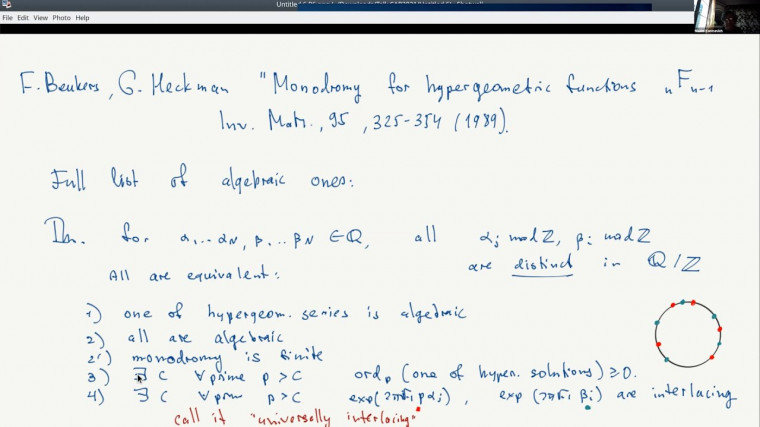 File Edit View Photo Help
F. Beukers, G. Heckman "Monodromy for hypergeometric functions ₙFₙ₋₁
Inv. Math., 95, 325-354 (1989).
Full list of algebraic ones:
Thm. for α₁...αN, β₁...βN ∈ ℚ, all αⱼ mod ℤ, βᵢ mod ℤ
All are equivalent: are distinct in ℚ/ℤ
1) one of hypergeom. series is algebraic
2) all are algebraic
2') monodromy is finite
3) ∃ C ∀ prime p > C ordₚ (one of hyper. solutions) ≥ 0.
4) ∃ C ∀ prime p > C exp(2πi p αⱼ), exp(2πi βⱼ) are interlacing
call it "universally interlacing"